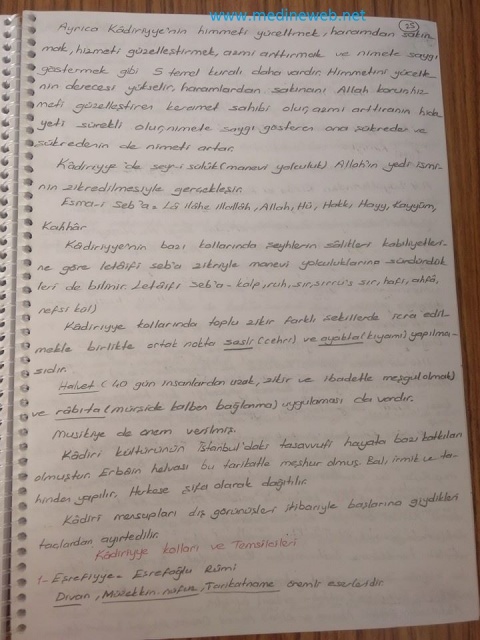 www.medineweb.net
25
Ayrıca Kâdiriyye'nin himmeti yüceltmek, haramdan sakın-
mak, hizmeti güzelleştirmek, azmi arttırmak ve nimete saygı
göstermek gibi 5 temel kuralı daha vardır. Himmetini yücelte-
nin derecesi yükselir, haramlardan sakınanı Allah korur, hiz-
meti güzelleştiren keramet sahibi olur, azmi arttıranın hida-
yeti sürekli olur, nimete saygı gösteren ona şükreder ve
şükredenin de nimeti artar.
Kâdiriyye'de seyr-i sülûk (manevi yolculuk) Allah'ın yedi ismi-
nin zikredilmesiyle gerçekleşir.
Esma-i Seb'a = Lâ ilâhe illallâh, Allah, Hû, Hakk, Hayy, Kayyûm,
Kahhâr
Kâdiriyye'nin bazı kollarında şeyhlerin sâlikleri kabiliyetleri-
ne göre letâifi seb'a zikriyle manevi yolculuklarını sürdürdük
leri de bilinir. Letâifi Seb'a - kalp, ruh, sır, sırru's sır, hafî, ahfâ,
nefsi kül)
Kâdiriyye kollarında toplu zikir farklı şekillerde icra edil-
mekle birlikte ortak nokta sesli (cehri) ve ayakta (kıyami) yapılma-
sıdır.
Halvet (40 gün insanlardan uzak, zikir ve ibadetle meşgul olmak)
ve râbıta (mürşide kalben bağlanma) uygulaması da vardır.
Musikiye de önem verilmiş.
Kâdirî kültürünün İstanbul'daki tasavvufi hayata bazı katkıları
olmuştur. Erbâin helvası bu tarikatle meşhur olmuş. Bal, irmik ve ta-
hinden yapılır. Herkese şifa olarak dağıtılır.
Kâdirî mensupları dış görünüşleri itibariyle başlarına giydikleri
taclardan ayırtedilir.
Kâdiriyye kolları ve Temsilcileri
1- Eşrefiyye = Eşrefoğlu Rûmi
Divan, Müzekkin-nüfus, Tarikatname önemli eserleridir.